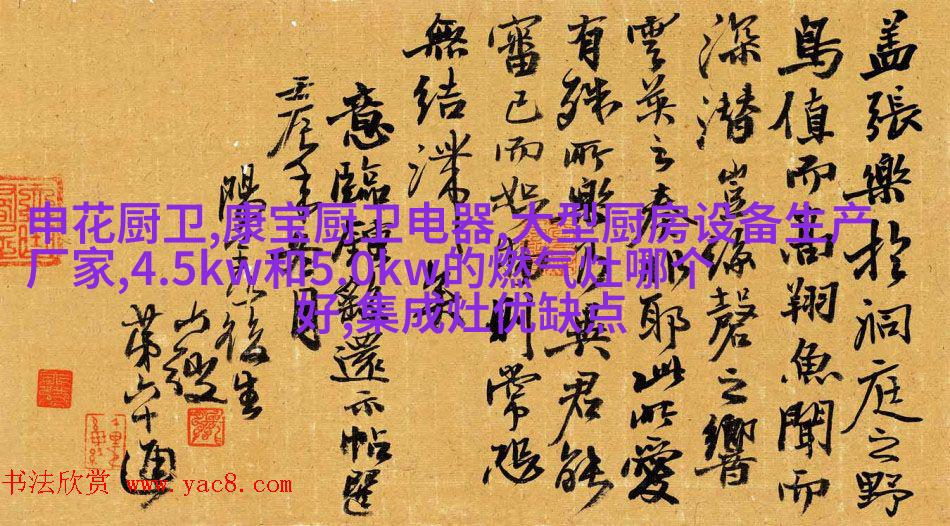 盖張樂於洞庭之野
鳥值而高翔魚聞而
深潜豈緣磬之響
雲英之奏耶此所愛
有殊所樂乃異君能
審已而恕則常恐
無結滞
意臨鍾繇還示帖選
陽後生
第六十通
申花厨卫,康宝厨卫电器,大型厨房设备生产
厂家,4.5kw和5.0kw的燃气灶哪个
好,集成灶优缺点
书法欣赏 www.yac8.com